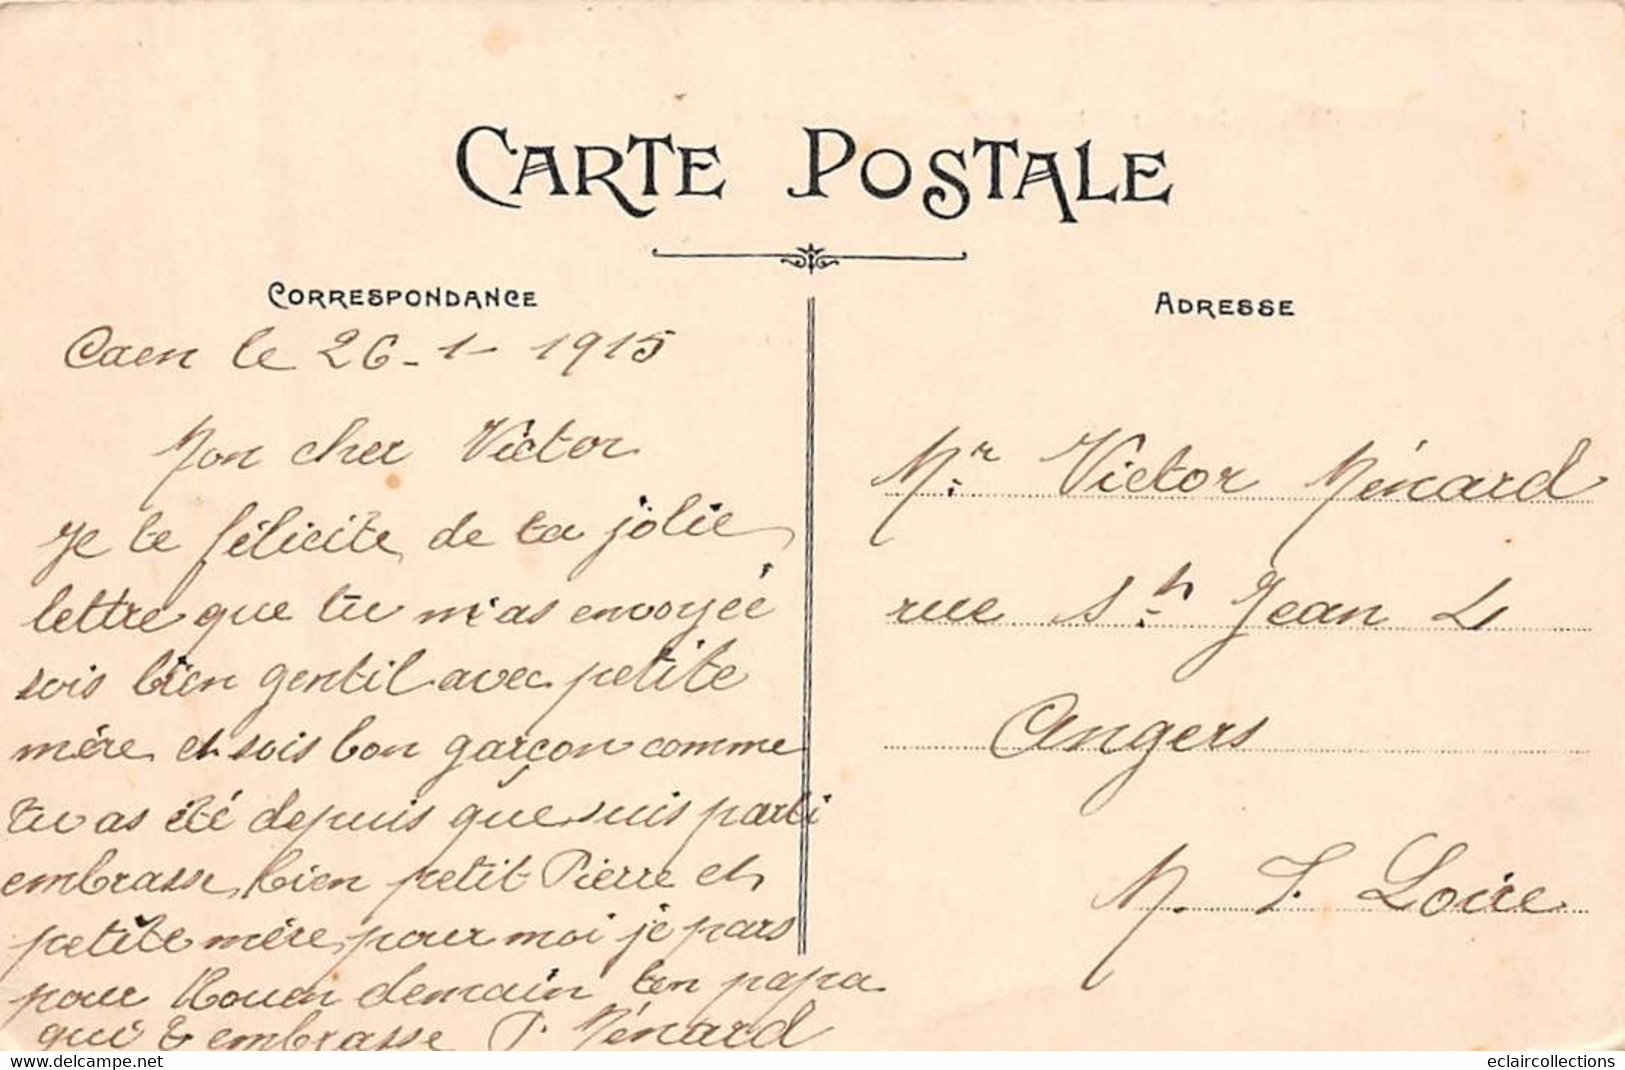 CARTE POSTALE
CORRESPONDANCE
Caen le 26-1-1915
Mon cher Victor
Je te félicite de ta jolie
lettre que tu m'as envoyée
sois bien gentil avec petite
mère et sois bon garçon comme
tu as été depuis que suis parti
embrasse bien petit Pierre et
petite mère pour moi je pars
pour Rouen demain ton papa
qui t'embrasse P. Ménard
ADRESSE
Mr Victor Ménard
rue St Jean 4
Angers
M. L. Loire
delcampe.net
eclaircollections